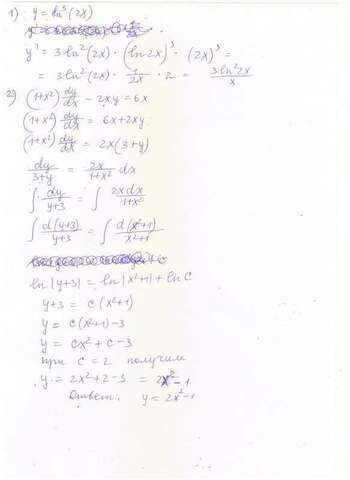 1) y = ln³(2x)
y' = 3 ln²(2x) · (ln 2x)' · (2x)' =
= 3 ln²(2x) · 1/2x · 2 = 3 ln² 2x / x
2) (1+x²) dy/dx − 2xy = 6x
(1+x²) dy/dx = 6x + 2xy
(1+x²) dy/dx = 2x(3+y)
dy/3+y = 2x/1+x² dx
∫ dy/y+3 = ∫ 2xdx/1+x²
∫ d(y+3)/y+3 = ∫ d(x²+1)/x²+1
ln |y+3| = ln |x²+1| + ln C
y+3 = c(x²+1)
y = c(x²+1) −3
y = cx² + c −3
при c = 2 получим
y = 2x² + 2 − 3 = 2x² − 1
Ответ: y = 2x² − 1